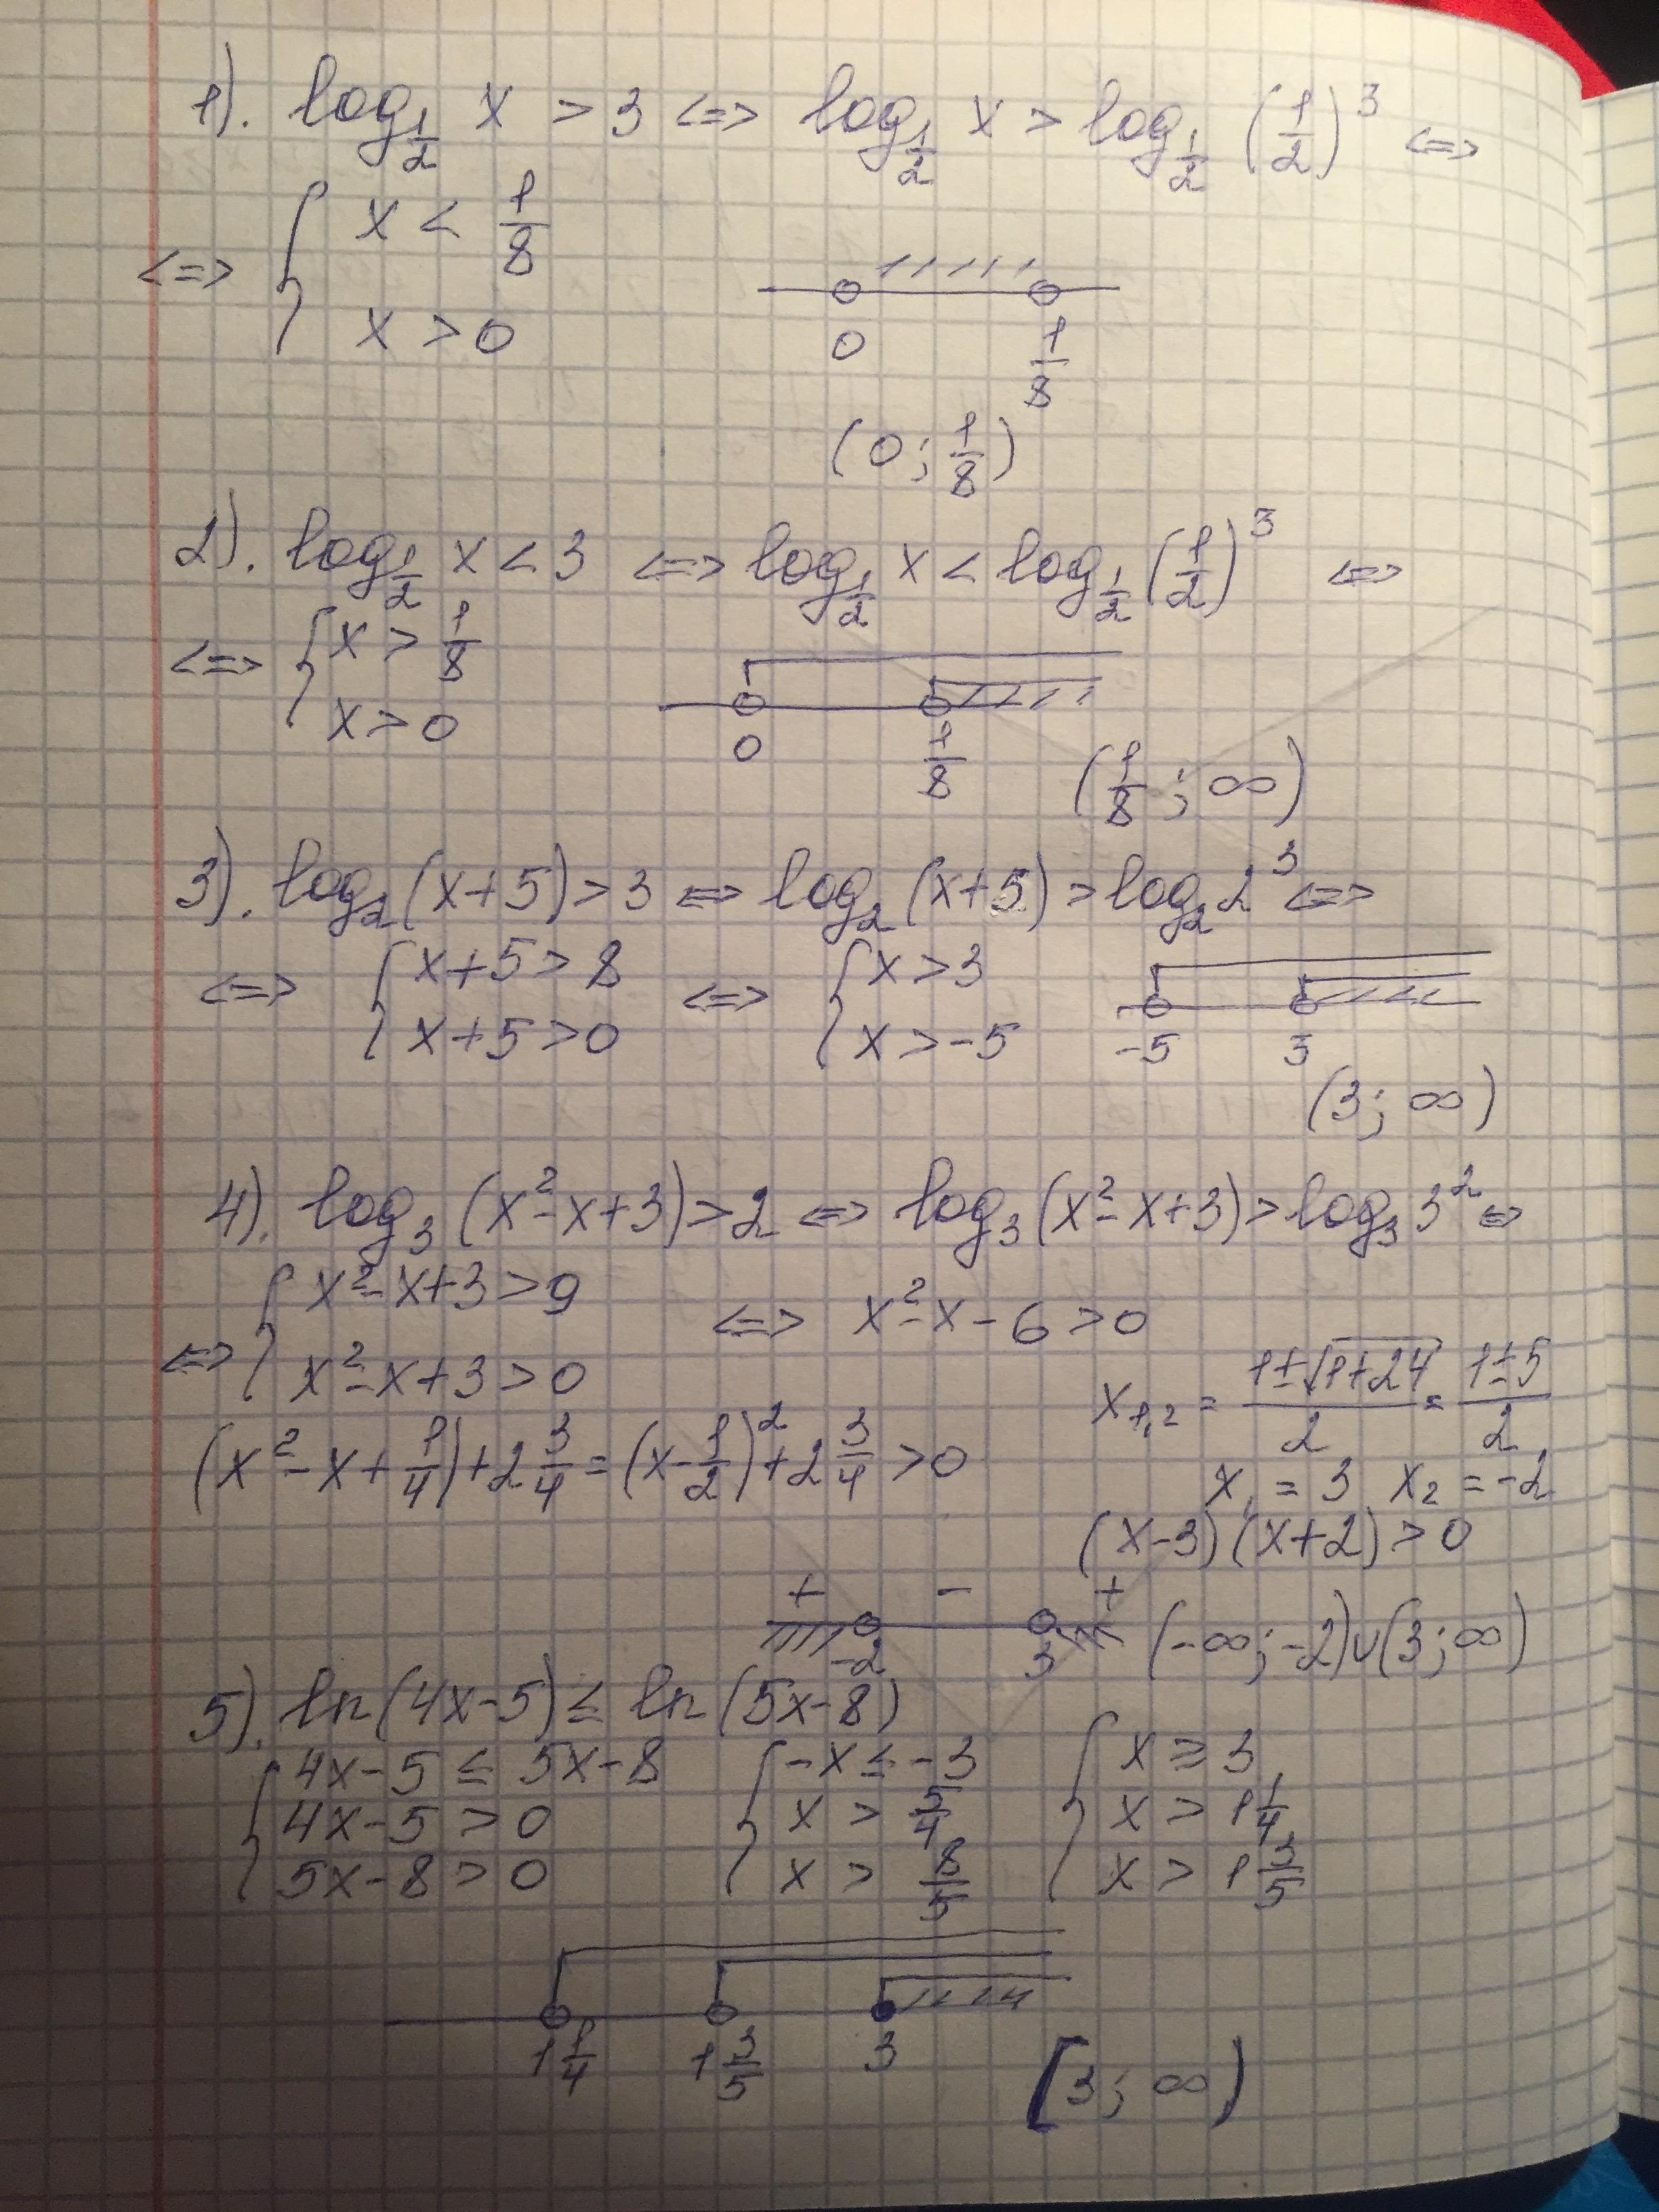 1). log_{1/2} x > 3 <=> log_{1/2} x > log_{1/2} (1/2)^3 <=>
<=> { x < 1/8
x > 0
0 1/8
(0; 1/8)
2). log_{1/2} x < 3 <=> log_{1/2} x < log_{1/2} (1/2)^3 <=>
<=> { x > 1/8
x > 0
0 1/8
(1/8; ∞)
3). log_2 (x+5) > 3 <=> log_2 (x+5) > log_2 2^3 <=>
<=> { x+5 > 8 <=> { x > 3
x+5 > 0 x > -5
-5 3
(3; ∞)
4). log_3 (x^2-x+3) > 2 <=> log_3 (x^2-x+3) > log_3 3^2 <=>
<=> { x^2-x+3 > 9 <=> x^2-x-6 > 0
x^2-x+3 > 0
x_{1,2} = (1±√(1+24))/2 = (1±5)/2
(x^2-x+1/4)+2 3/4 = (x-1/2)^2+2 3/4 > 0
x_1 = 3 x_2 = -2
(x-3)(x+2) > 0
+ - +
-2 3 (-∞; -2)∪(3; ∞)
5). ln(4x-5) ≤ ln(5x-8)
{ 4x-5 ≤ 5x-8 { -x ≤ -3 { x ≥ 3
4x-5 > 0 x > 5/4 x > 1 1/4
5x-8 > 0 x > 8/5 x > 1 3/5
1 1/4 1 3/5 3
[3; ∞)